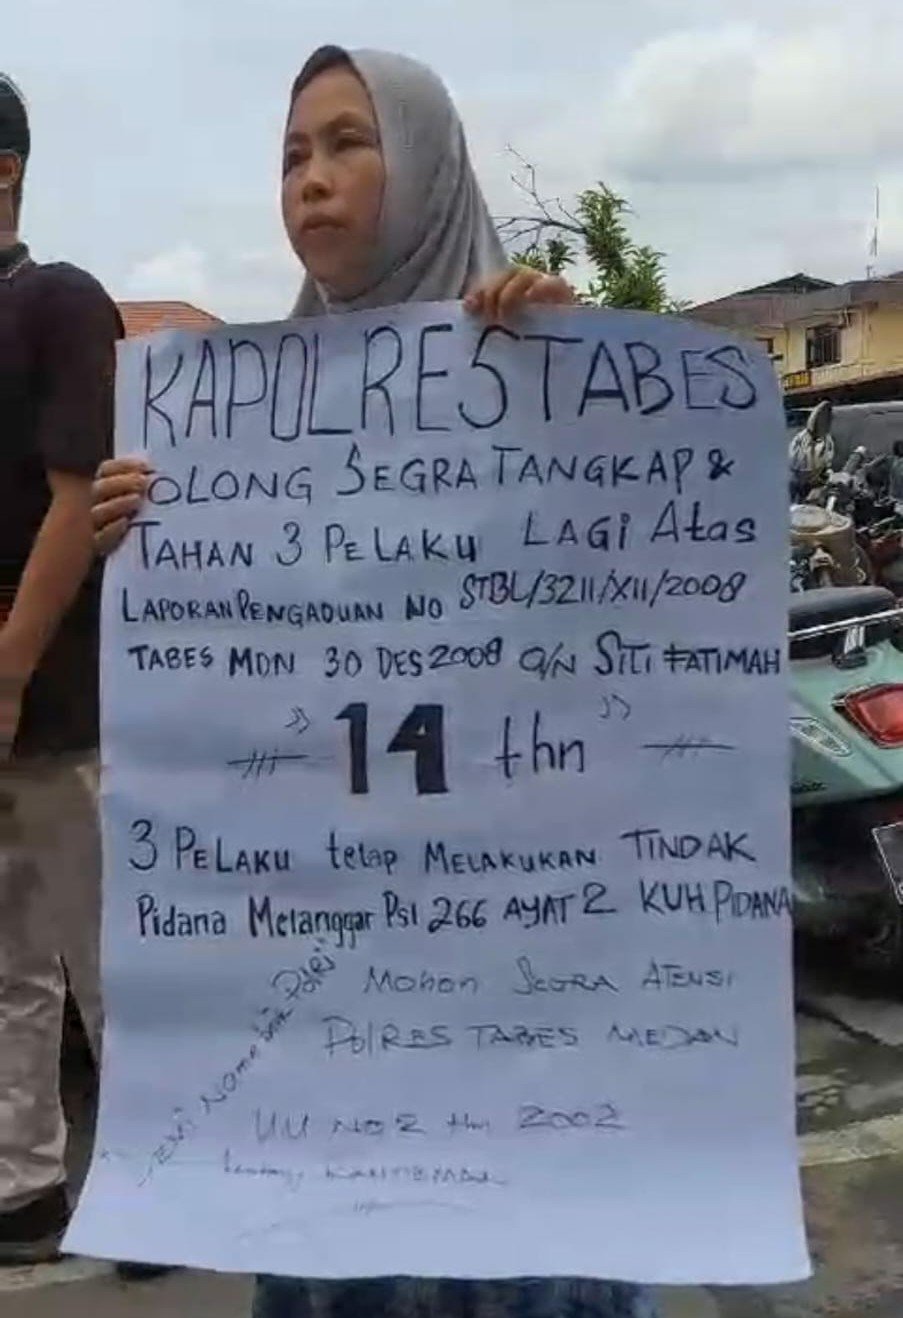 KAPOLRESTABES
TOLONG SEGRA TANGKAP &
TAHAN 3 PELAKU LAGI Atas
LAPORAN PENGADUAN NO STBL/3211/XII/2008
TABES MDN 30 DES 2008 a/N SITI FATIMAH
" 14 thn "
3 PELAKU tetap MELAKUKAN TINDAK
Pidana Melanggar Psl 266 AYAT 2 KUH PIDANA
Mohon SEGRA ATENSI
POLRES TABES MEDAN
DEMI NAMA baik POLRI"
UU NO 2 thn 2002
tentang